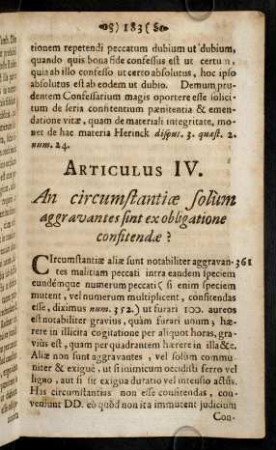 o8) 183 ( 8o
tionem repetendi peccatum dubium ut dubium,
quando quis bona fide confessus est ut certum,
quia ab illo confesso ut certo absolutus, hoc ipso
absolutus est ab eodem ut dubio. Demum, pru-
dentem Confessarium magis oportere esse solici-
tum de seria confitentium pænitentia & emen-
datione vitæ, quam de materiali integritate, mo-
net de hac materia Herinck dispus. 3. quæst. 2.
num. 24.
ARTICULUS IV.
An circumstantiæ solùm
aggravantes sint ex obligatione
confitendæ?
CIrcumstantiæ aliæ sunt notabiliter aggravan- 361
tes malitiam peccati intra eandem speciem
eundémque numerum peccati ( si enim speciem
mutent, vel numerum multiplicent, confitendas
esse, diximus num. 352.) ut furari 100. aureos
est notabiliter gravius, quàm furari unum, hæ-
rere in illicita cogitatione per aliquot horas, gra-
vius est, quam per quadrantem hærere in illa &c.
Aliæ non sunt aggravantes , vel solùm commu-
niter & exiguè, ut si inimicum occidisti ferro vel
ligno, aut si sit exigua dutatio vel intensio actûs.
Has circumstantias non esse confitendas, con-
veniunt DD. eò quòd non ita immutent judicium
Con-